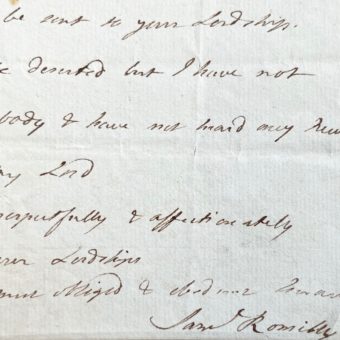 be sent to your Lordships.
deserted but I have not
body & have not heard any New
my Lord
respectfully & affectionately
Your Lordships
most obliged & obedient
Saml Romilly